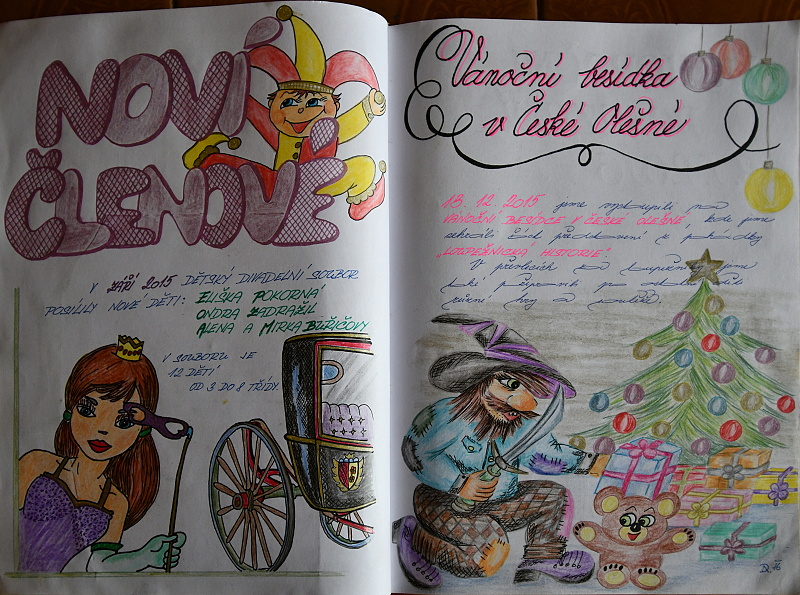 NOVÍ
ČLENOVÉ
V ZÁŘÍ 2015 DĚTSKÝ DIVADELNÍ SOUBOR
POSÍLILY NOVÉ DĚTI: ELIŠKA POKORNÁ
ONDRA ZADRAŽIL
ALENA A MIRKA BUŘIČOVY
V SOUBORU JE
12 DĚTÍ
OD 3 DO 8 TŘÍDY.
Vánoční besídka
v České Olešné
18. 12. 2015 jsme vystoupili na
VÁNOČNÍ BESÍDCE V ČESKÉ OLEŠNÉ, kde jsme
sehráli část představení z pohádky
"LOUPEŽNICKÁ HISTORIE".
V jsme
také připravili pro
různé hry a soutěže.